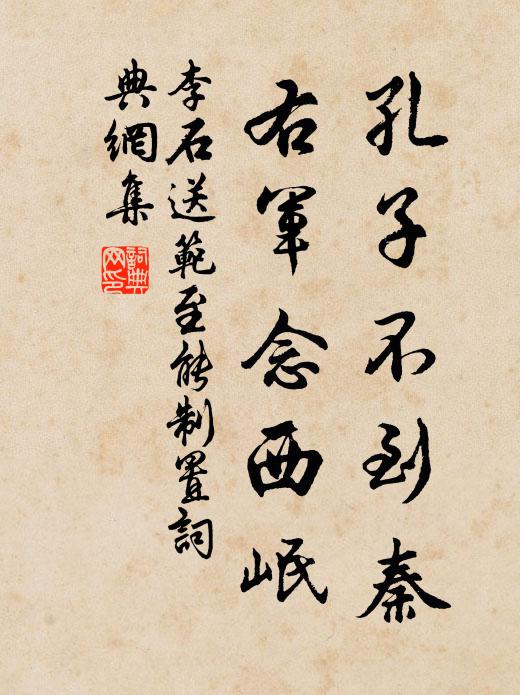 孔子不到秦
右軍念西岷
李石送範至能制置詞
典網集
詞典
网印